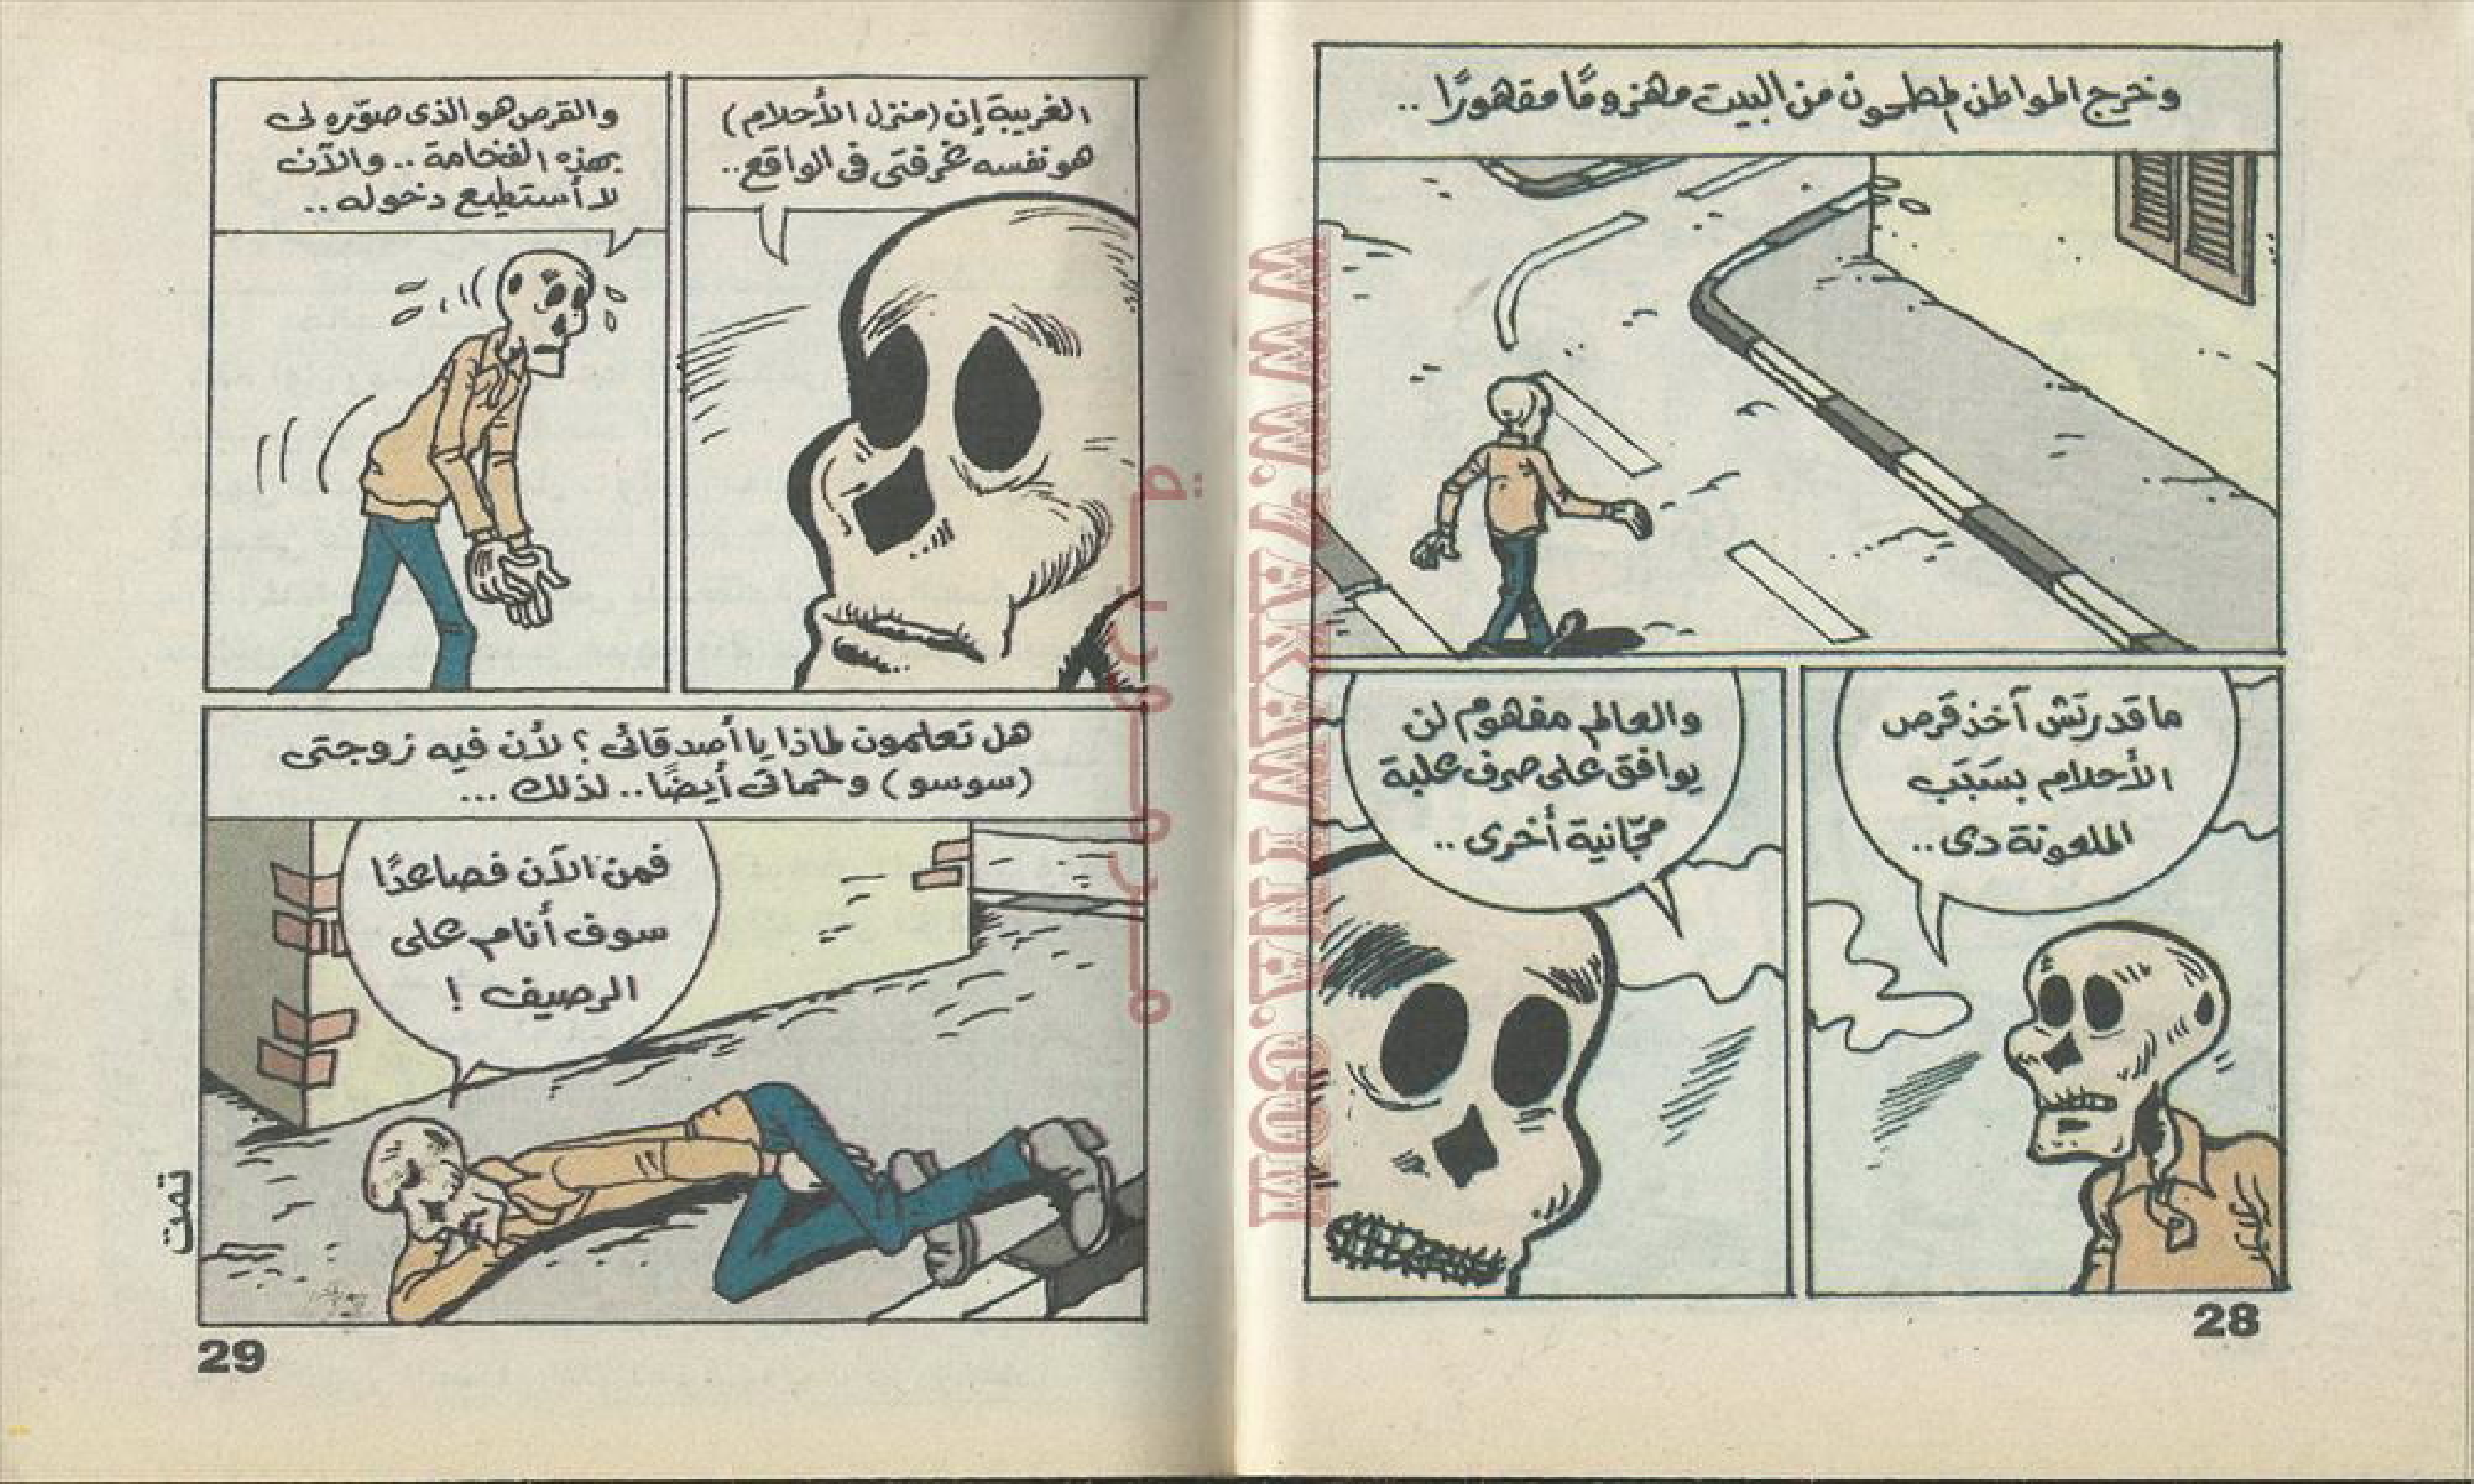 وخرج المواطن المطحون من البيت مهزومًا مقهورًا ..
ما قدرتش آخذ قرص
الأحلام بسبب
الملعونة دى ..
والعالم مفهوم لن
يوافق على صرف علبة
مجّانية أخرى ..
28
الغريبة إن (منزل الأحلام)
هو نفسه غرفتى فى الواقع ..
والقرص هو الذى صوّره لى
بهذه الفخامة .. والآن
لا أستطيع دخوله ..
هل تعلمون لماذا يا أصدقائى ؟ لأن فيه زوجتى
(سوسو) وحماتى أيضًا .. لذلك ...
فمن الآن فصاعدًا
سوف أنام على
الرصيف !
تمت
29